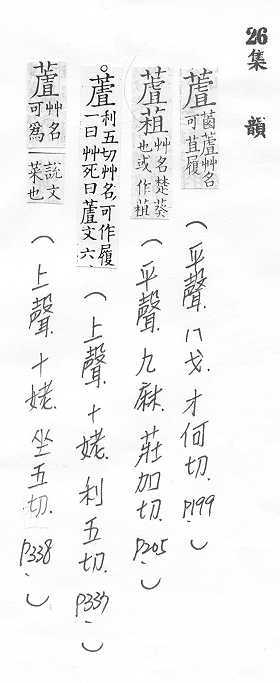 26集韻
蔖菌蔖艸名可苴履(平聲.八戈.才何切.P199.)
蔖菹艸名楚葵也或作菹(平聲.九麻.莊加切.P205.)
。蔖利五切艸名可作履一曰艸死曰蔖文六(上聲.十姥.利五切.P337.)
蔖艸名可為一說文菜也(上聲.十姥.坐五切.P338.)